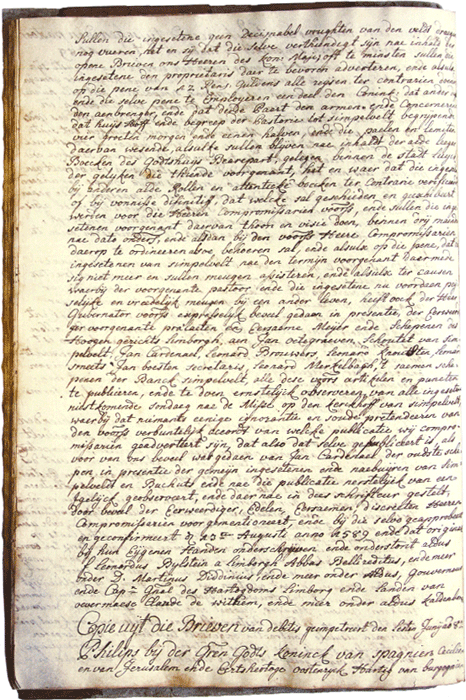 Sullen die ingesetene geen Decimabel vrughten van den veldt
nog vueren, het en sij dat die selve verthiendegt sijn nae inhald der
opene Brieven ons Heeren des kon: Majest. oft te minsten sullen die
ingesetene den proprietaris daer te bevoren adverteren, ende alsulx
op die pene van 12 Rens guldens alle reijsen ter contrarien
ende die selve pene te Employeren een deel den Coninck, dat ander
den aenbrenger, ende dat derde Paert den armen, ende Concernerende
dat huijs Hoff ende begreep der Pastorie tot simpelvelt, begrijpende
vier grooten morgen ende einen halven, ende die paelen en limiten
daervan wesende, alsulke sullen blijven nae inhaldt der alde
Boecken des Godtshuijs gelegen binnen de stadt
der gelijken die thiende voorgenant, het en waer dat die ingesetene
bij anderen alde Rollen en attentieke boecken ter Contrarie verificeren
of bij vonnisse difinitif, dat welcke sal gescheiden en
werden voor die Heeren Compromissarien voors., ende sullen die inge-
setenen voorgenant daervan thoon en visie doen, binnen drij maenden
nae dato onders., ende alsdan bij den voors. Heere Compromissarien
daerop te ordineren alsoo behooren sal, ende alsulx op die pene, dat die
ingesetenen van simpelvelt nae den termijn voorgenant daermede
nijt meer en sullen meugen assisteren, ende alsulx ter causen
waerbij der voorgenente pastoor ende die ingesetene nu voordaen
selijke en vredelijk meugen bij een ander leven, heeft oock der Heere
Gubernator voors. expresselijk bevel gedaen in presentie, der Eerweer-
der voorgenante pralaeten de Eersaeme Meijer ende Schepenen des
Hoogen gerichts Limborgh, aen Jan Schoutet van Sim-
pelvelt, Jan Cardenael, Lenard Brouwers, Lenard Lenard
smeets Jan boesten secretaris, Leenard Merkelbagh, t'saemen sche-
penen der Banck simpelvelt, alle dese voors. artikelen en puncten
te publiceren, ende te doen ernstelijk observeren van alle ingesetenen
naistkomende sondag nae de Misse op den kerckhoff van simpelvelt,
waerbij dat nimants eenige ignorantie en soude pretenderen van
den voors. verbuntelijk accort van welke publicatie wij compro-
missarien geadverteert sijn, dat also dat selve gepubliceert is, als
voor van ons bevel was gedaen van Jan Cardenael der oudste sche-
pen, in presentie der gemeijn ingesetenen ende naebuijren van Sim-
pelveldt en Bucholts ende nae die publicatie nerstelijk van een
igelijck geobserveert, ende daer nae in dees schrifteur gestelt
door bevel der Eerweerdiger, Edelen, Eersaemen, discreeten Heeren
Compromissarien voorgementioneert, ende bij die selve geapprobeert
en geconfirmeert den 23ten Augusti anno 1589 ende dat origineel
bij hun Eijgenen Handen onderschreven ende onderstont aldus
Leonardus Bijlstein a Limborgh Abbas Belli reditus, ende meer
onder D. Martinus Diddinius, ende meer onder aldus, Gouverneur
ende Cap: Gnal des Hartogdoms Limborg ende Landen van
overmaese Claude de Withem, ende meer onder aldus kaldenborg
Copie uijt die Brieven van debitis geimpetreert den lesten Junij
Philips bij der gren Godts koninck van spagnien Cecilien
en van Jerusalem ende Eertshertoge oostenrijck Hartog van burgognien